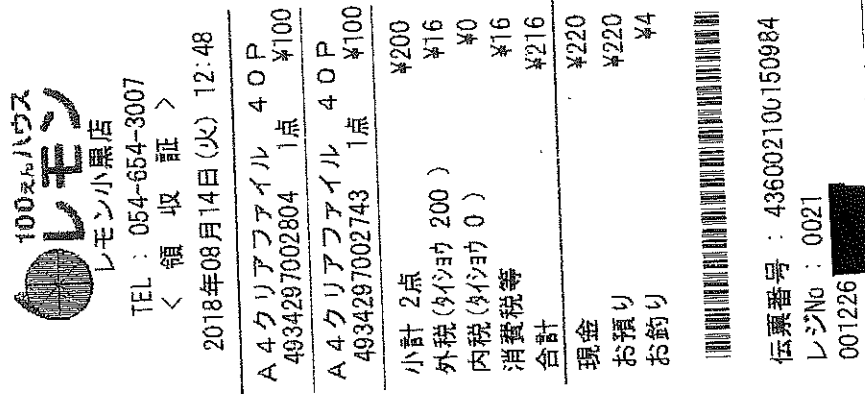 100えんハウス
レモン
レモン小黒店
TEL : 054-654-3007
< 領 収 証 >
2018年08月14日(火) 12:48
A4クリアファイル 40P
4934297002804 1点 ¥100
A4クリアファイル 40P
4934297002743 1点 ¥100
小計 2点 ¥200
外税(タイショウ 200 ) ¥16
内税(タイショウ 0 ) ¥0
消費税等 ¥16
合計 ¥216
現金 ¥220
お預り ¥220
お釣り ¥4
伝票番号 : 436002100150984
レジNo : 0021
001226